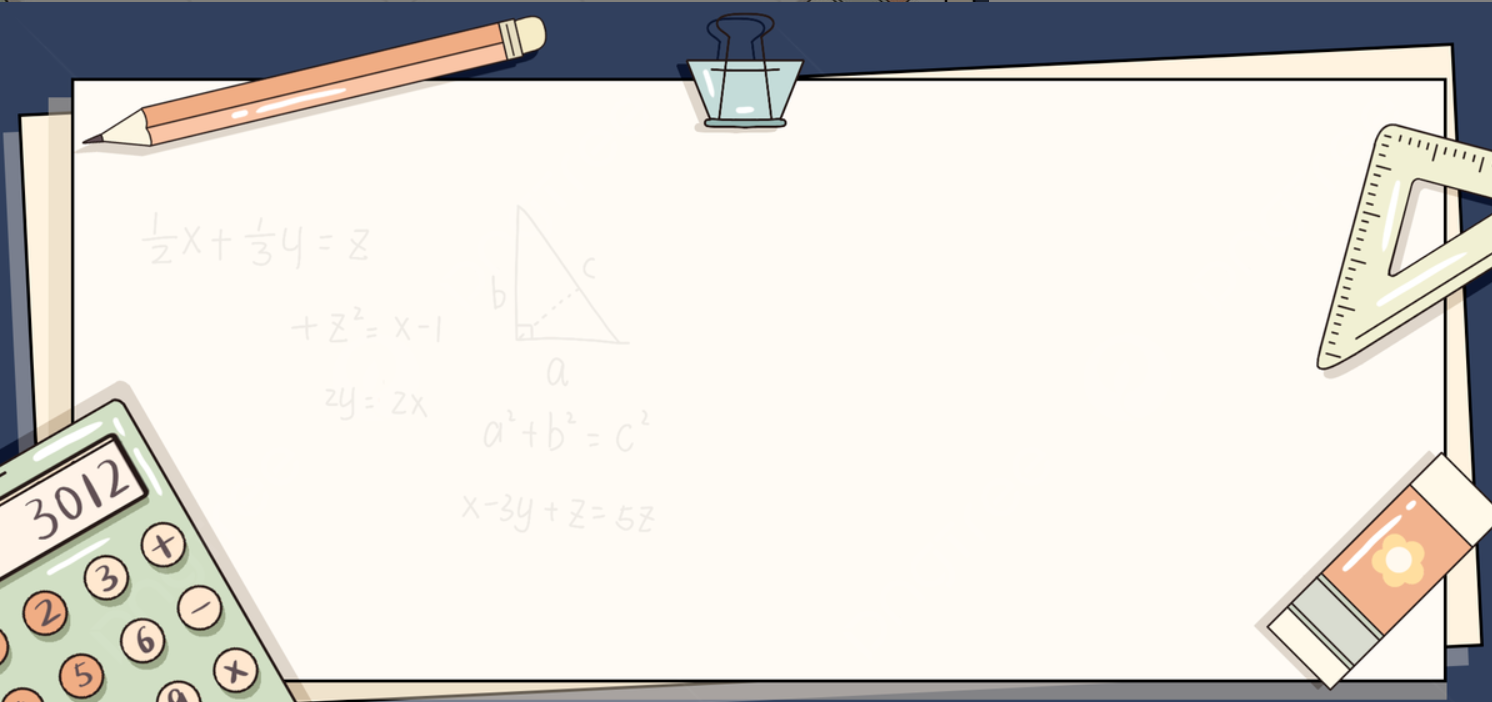 1/2 x + 1/3 y = z
+ z² = x-1
2y = 2x
b
c
a
a² + b² = c²
x-3y + z = 5z
3012
+
3
2
−
6
5
×
9